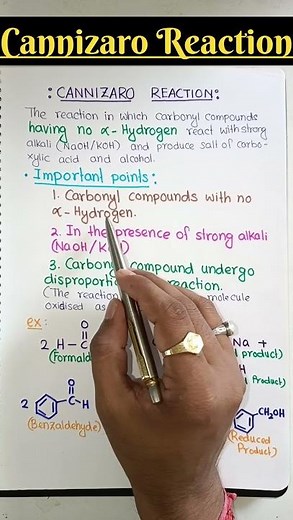 Cannizaro Reaction
: CANNIZARO REACTION:
The reaction in which Carbonyl compounds
having no α-Hydrogen react with strong
alkali (NaOH/KOH) and produce salt of carbo-
xylic acid and alcohol.
• Important points:
1. Carbonyl compounds with no
α-Hydrogen.
2. In the presence of strong alkali
(NaOH/KOH)
3. Carbonyl compound undergo
disproportion reaction.
(The reaction molecule
oxidised as
ex:
O
2 H-C Na +
(Formald product)
H
Product)
O
2 C-H CH₂OH
(Benzaldehyde) (Reduced
Product)